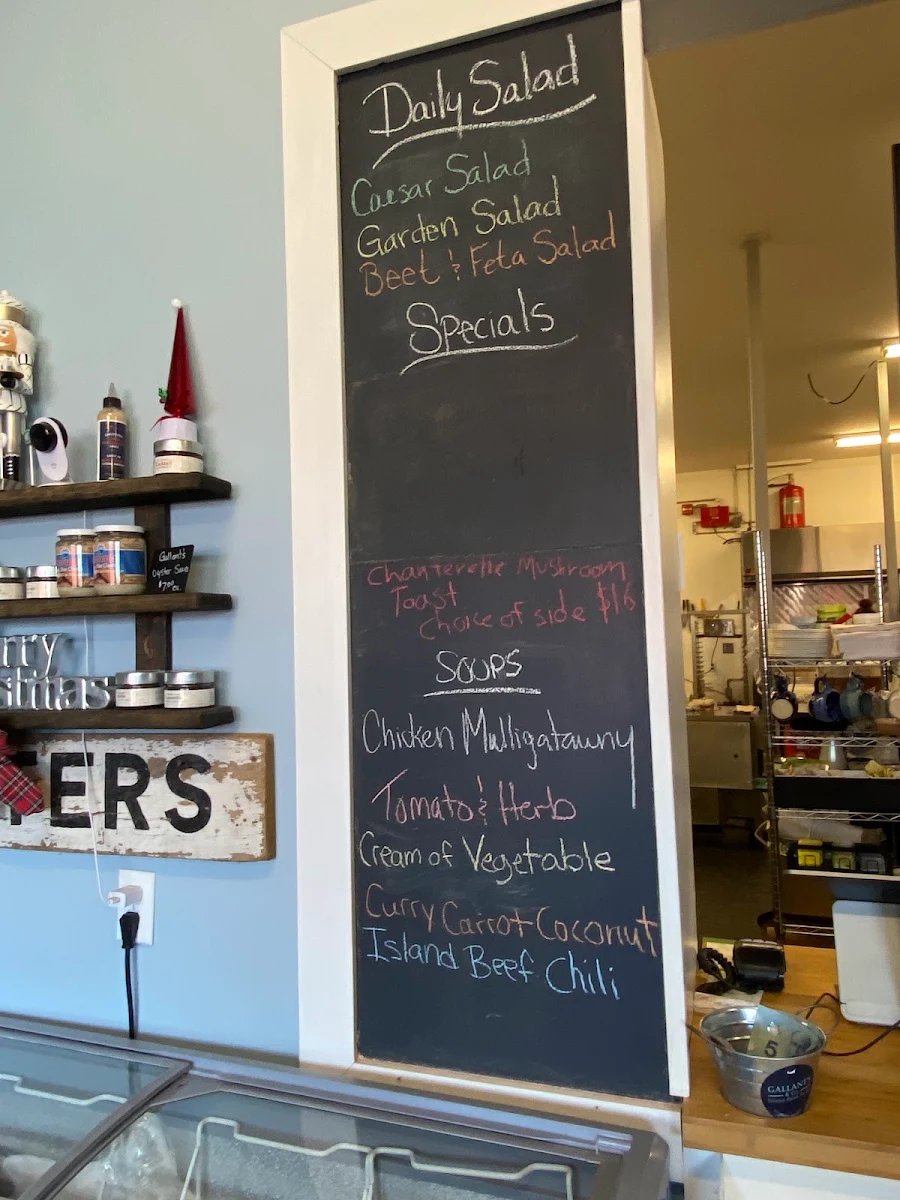 Daily Salad
Caesar Salad
Garden Salad
Beet & Feta Salad
Specials
Chanterelle Mushroom
Toast
Choice of side $16
SOUPS
Chicken Mulligatawny
Tomato & Herb
Cream of Vegetable
Curry Carrot Coconut
Island Beef Chili
Gallant's
Oyster Sauce
$7.00
rry
stmas
TERS
5
GALLANT'S
& CO